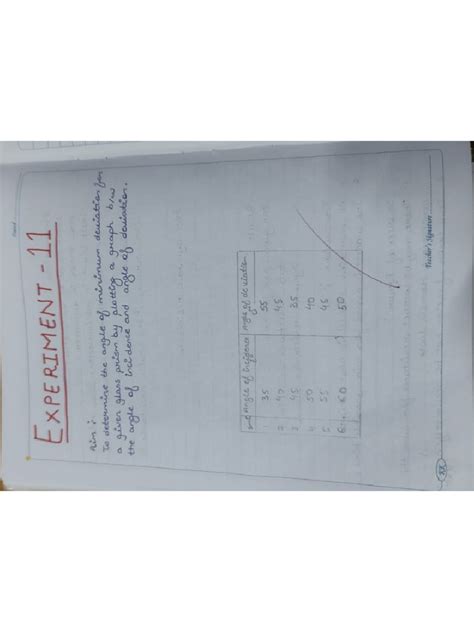 EXPERIMENT - 11
Aim :
To determine the angle of minimum deviation for
a given glass prism by plotting a graph b/w
the angle of incidence and angle of deviation.
Angle of Incidence Angle of deviation
35 55
2 40 45
3 45 35
4 50 40
5 55 45
6 60 50
Teacher's Signature